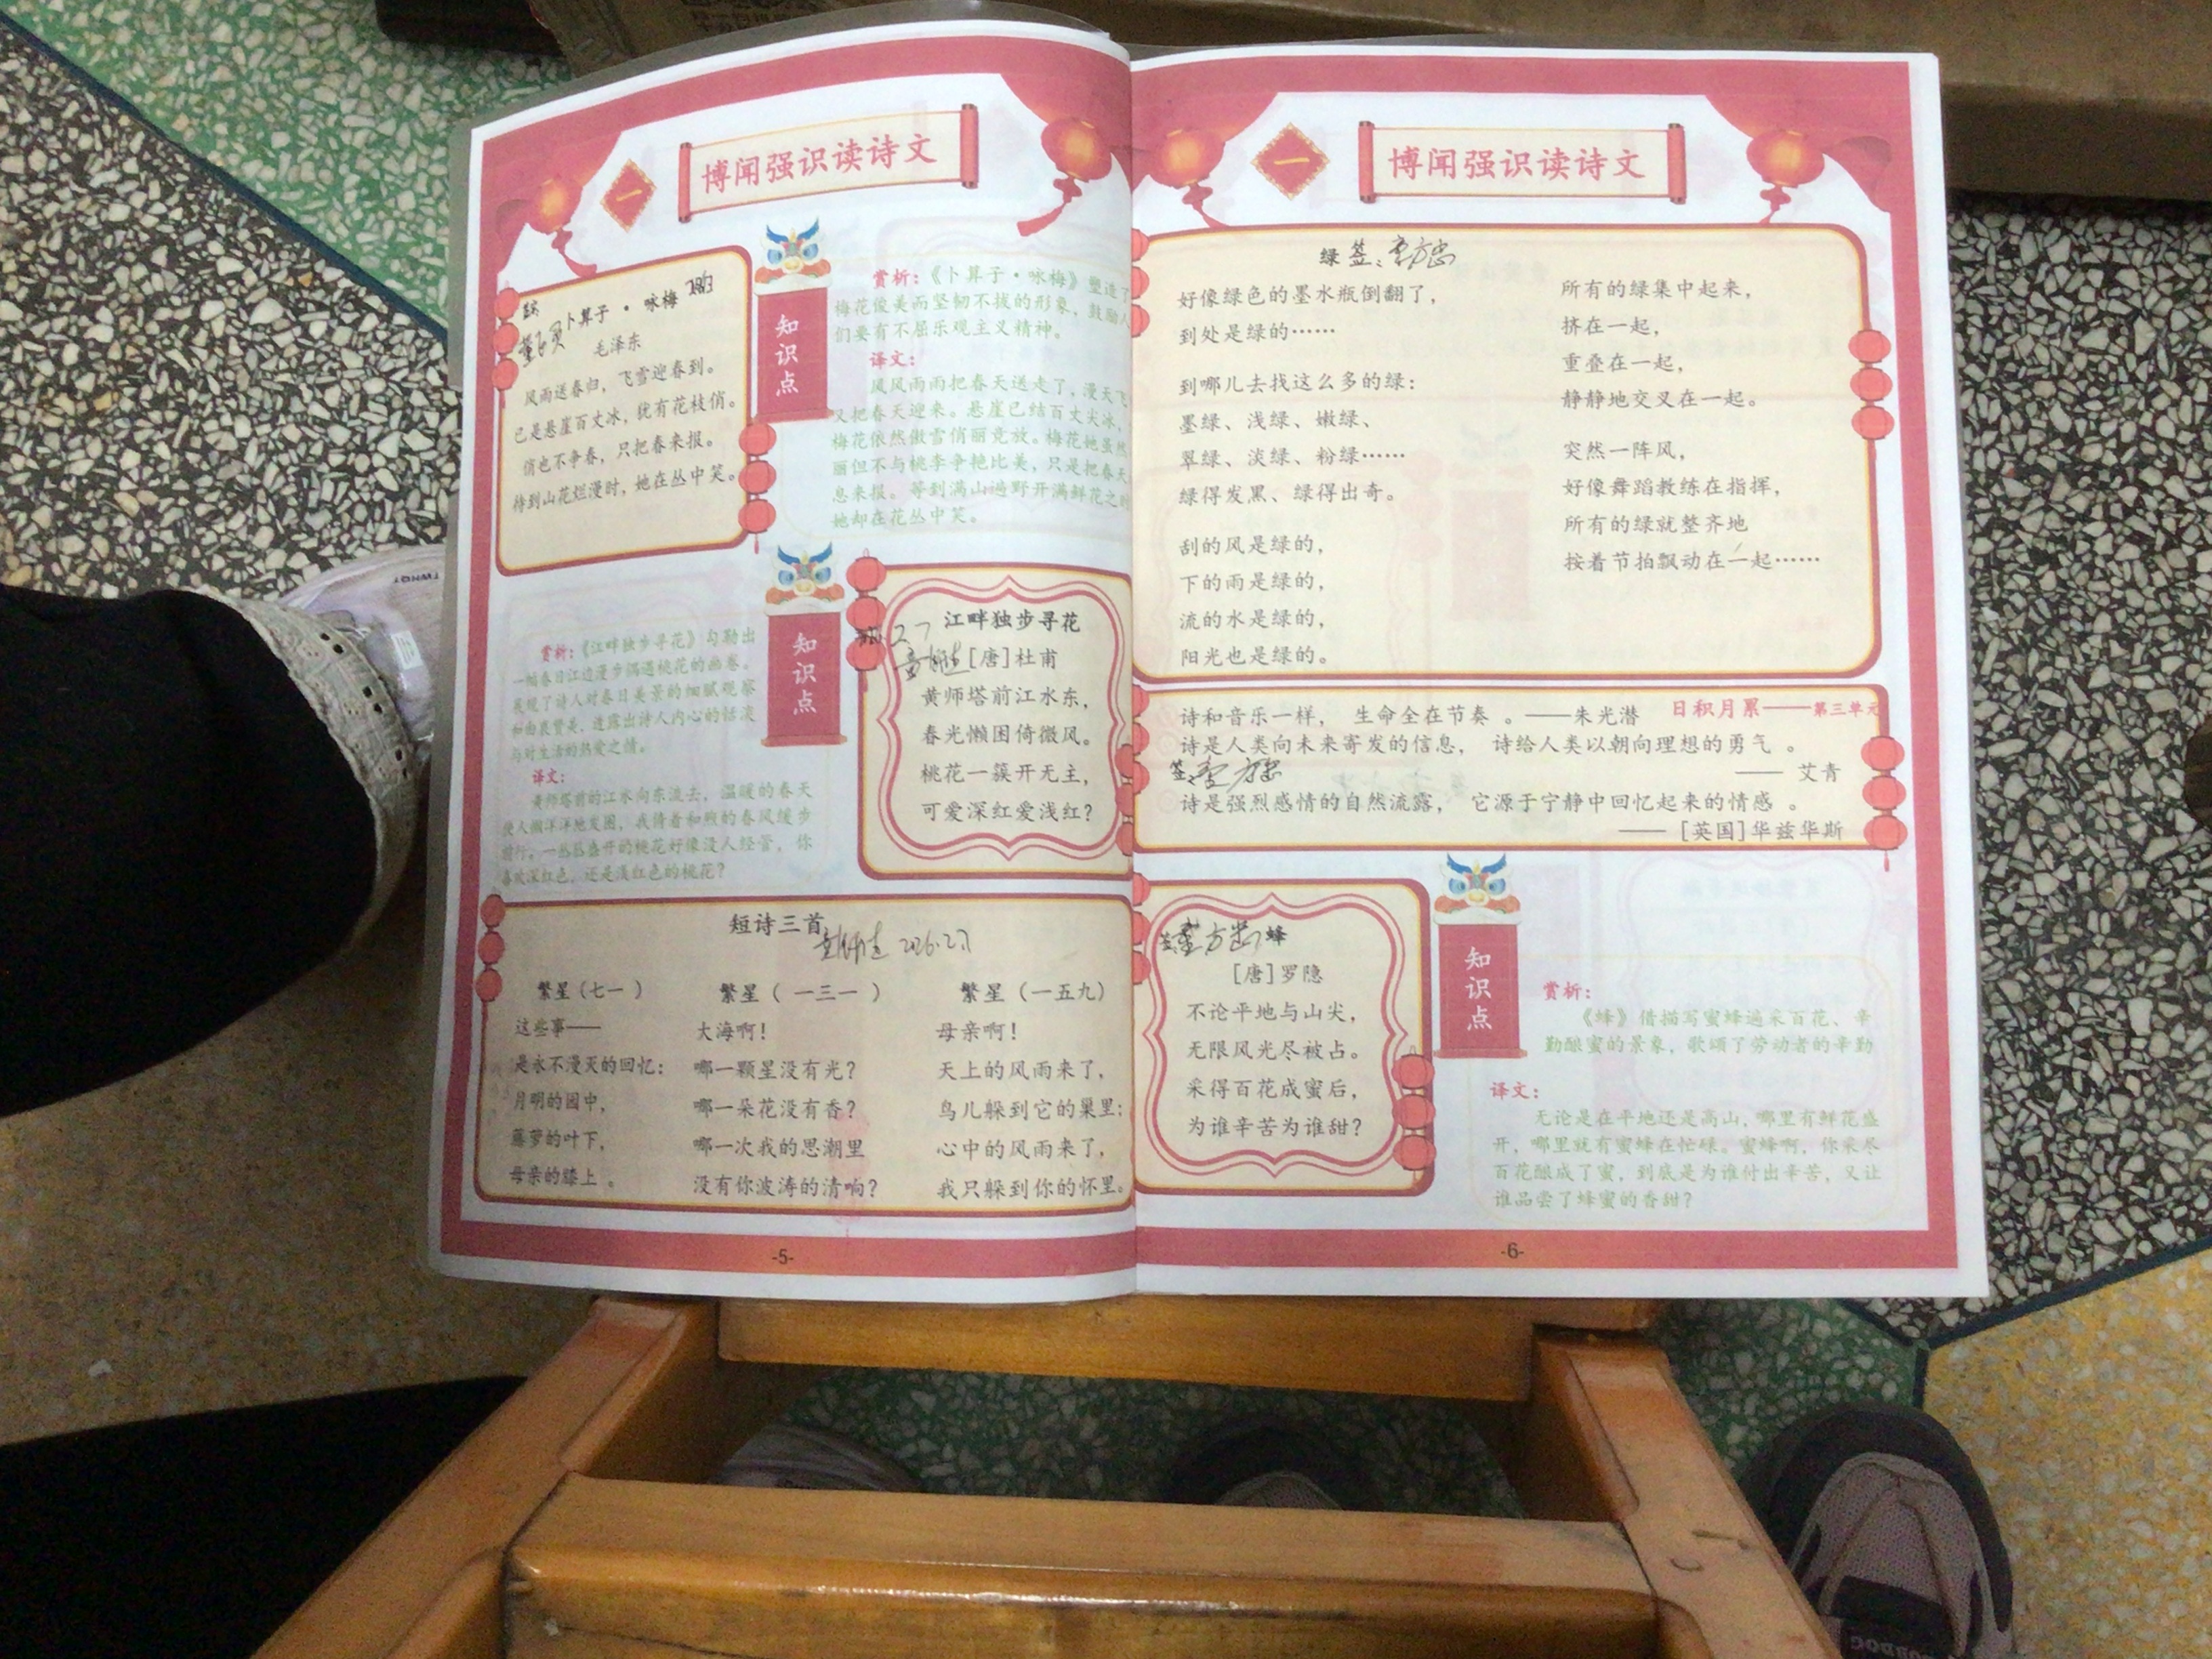 一
博闻强识读诗文
卜算子·咏梅
毛泽东
风雨送春归，飞雪迎春到。
已是悬崖百丈冰，犹有花枝俏。
俏也不争春，只把春来报。
待到山花烂漫时，她在丛中笑。
知识点
赏析：《卜算子·咏梅》塑造了
梅花俊美而坚韧不拔的形象，鼓励人
们要有不屈乐观主义精神。
译文：
风风雨雨把春天送走了，漫天飞
又把春天迎来。悬崖已结百丈尖冰，
梅花依然傲雪俏丽竞放。梅花她虽然
丽但不与桃李争艳比美，只是把春天
息来报。等到满山遍野开满鲜花之时
她却在花丛中笑。
赏析：《江畔独步寻花》勾勒出
一幅春日江边漫步偶遇桃花的画卷。
展现了诗人对春日美景的细腻观察
和由衷赞美，透露出诗人内心的恬淡
与对生活的热爱之情。
译文：
黄师塔前的江水向东流去，温暖的春天
使人懒洋洋地发困，我倚着和煦的春风缓步
前行。一丛丛盛开的桃花好像没人经管，你
喜欢深红色，还是浅红色的桃花？
知识点
江畔独步寻花
2.7
[唐]杜甫
黄师塔前江水东，
春光懒困倚微风。
桃花一簇开无主，
可爱深红爱浅红？
短诗三首
2026.2.7
繁星（七一）
这些事——
是永不漫灭的回忆：
月明的园中，
藤萝的叶下，
母亲的膝上。
繁星（一三一）
大海啊！
哪一颗星没有光？
哪一朵花没有香？
哪一次我的思潮里
没有你波涛的清响？
繁星（一五九）
母亲啊！
天上的风雨来了，
鸟儿躲到它的巢里；
心中的风雨来了，
我只躲到你的怀里。
-5-
一
博闻强识读诗文
绿 签：
好像绿色的墨水瓶倒翻了，
到处是绿的……
到哪儿去找这么多的绿：
墨绿、浅绿、嫩绿、
翠绿、淡绿、粉绿……
绿得发黑、绿得出奇。
刮的风是绿的，
下的雨是绿的，
流的水是绿的，
阳光也是绿的。
所有的绿集中起来，
挤在一起，
重叠在一起，
静静地交叉在一起。
突然一阵风，
好像舞蹈教练在指挥，
所有的绿就整齐地
按着节拍飘动在一起……
诗和音乐一样， 生命全在节奏 。——朱光潜 日积月累——第三单元
诗是人类向未来寄发的信息， 诗给人类以朝向理想的勇气 。
签：
—— 艾青
诗是强烈感情的自然流露， 它源于宁静中回忆起来的情感 。
—— [英国]华兹华斯
蜂
[唐]罗隐
不论平地与山尖，
无限风光尽被占。
采得百花成蜜后，
为谁辛苦为谁甜？
知识点
赏析：
《蜂》借描写蜜蜂遍采百花、辛
勤酿蜜的景象，歌颂了劳动者的辛勤
译文：
无论是在平地还是高山，哪里有鲜花盛
开，哪里就有蜜蜂在忙碌。蜜蜂啊，你采尽
百花酿成了蜜，到底是为谁付出辛苦，又让
谁品尝了蜂蜜的香甜？
-6-